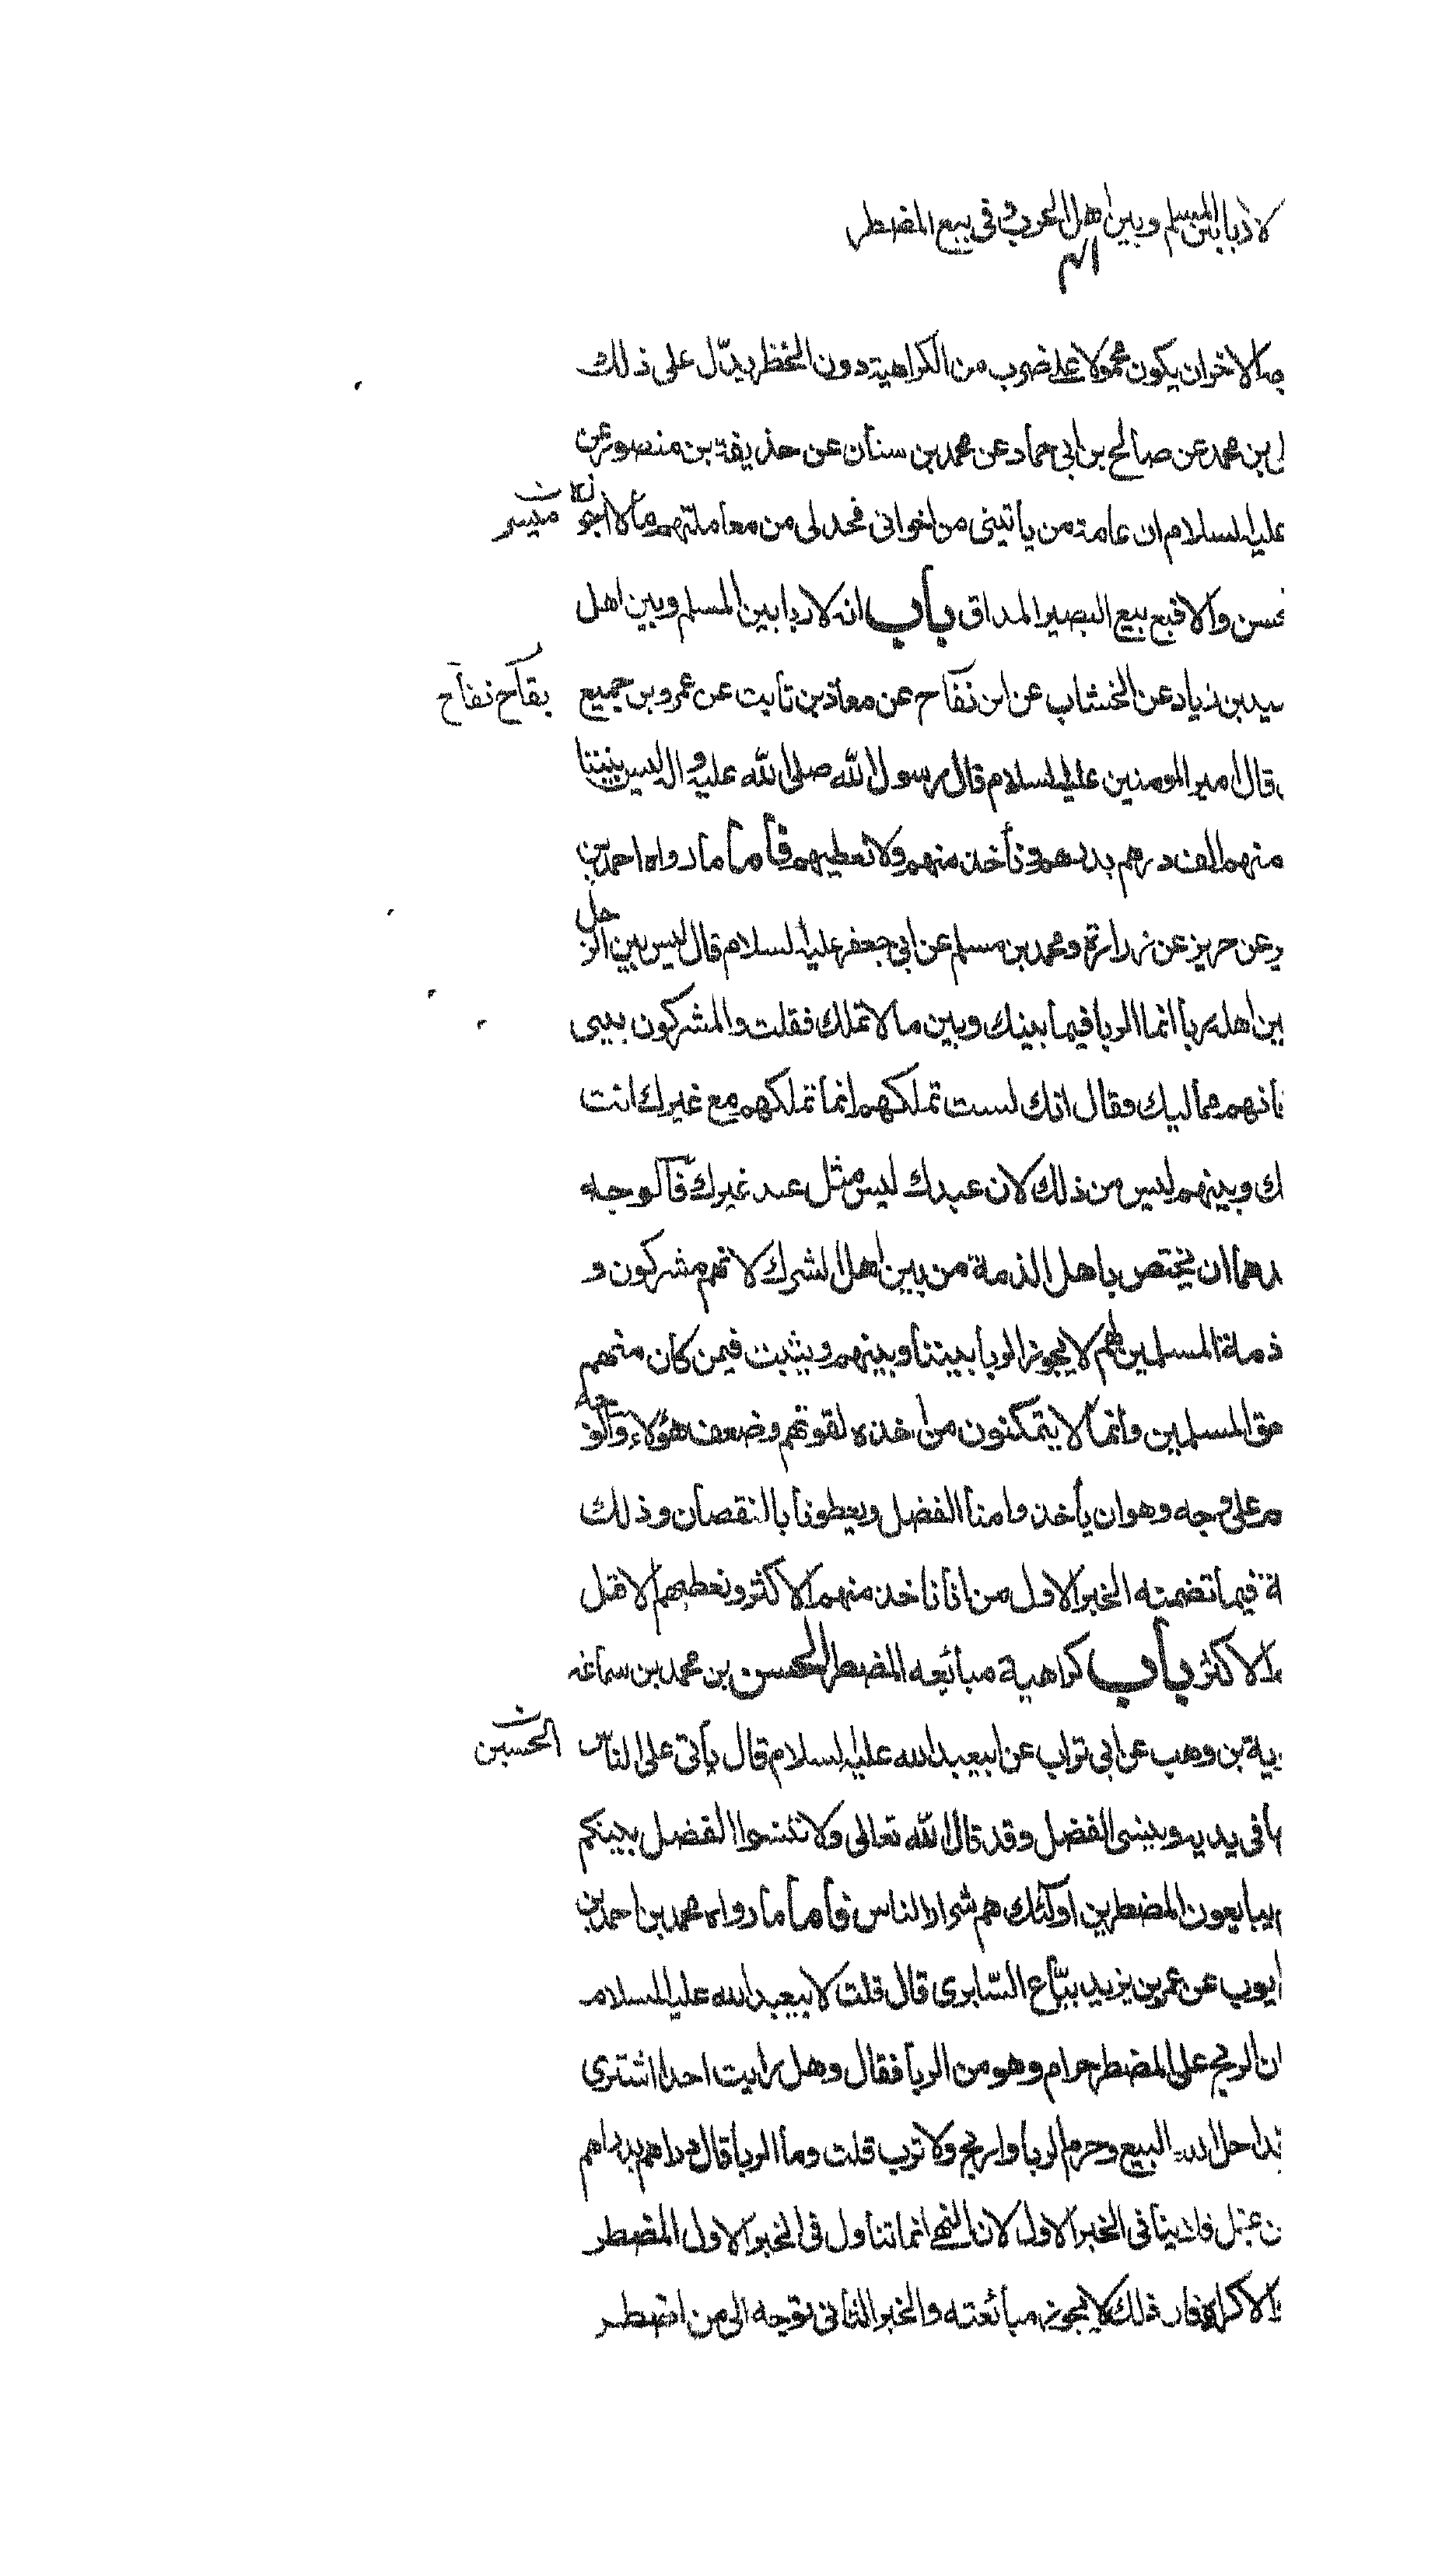 لا ربا بين المسلم وبين اهل الحرب و فى بيع المضطر
الاخر ان يكون محمولا على ضرب من الكراهية دون الحظر يدّل على ذلك
بن محمد عن صالح بن ابى حماد عن محمد بن سنان عن حذيفة بن منصور عن
ميسر
عليه السلام ان عامة من ياتينى من اخوانى فحد لى من معاملتهم ما لا اجو
والا فبع بيع البصير المداق باب انه لا ربا بين المسلم وبين اهل
بن زياد عن الخشاب عن ابن نقاح عن معاذ بن ثابت عن عمرو بن جميع
بقاح نفاح
قال امير المومنين عليه السلام قال رسول الله صلى الله عليه و اله ليس بيننا
منهم الف درهم بدرهم و ناخذ منهم ولا نعطيهم فأما ما رواه احمد بن
عن حريز عن زرارة ومحمد بن مسلم عن ابى جعفر عليه السلام قال ليس بين الر
جل
ين اهله ربا انما الربا فيما بينك وبين ما لا تملك فقلت والمشركون بينى
فانهم مماليك فقال انك لست تملكهم انما تملكهم مع غيرك انت
ك وبينهم ليس من ذلك لان عبدك ليس مثل عبد غيرك فالوجه
دهما ان يختص باهل الذمة من بين اهل الشرك لانهم مشركون و
ذمة المسلمين هم لا يجوز الربا بيننا وبينهم ويثبت فيمن كان منهم
حق المسلمين وانما لا يتمكنون من اخذه لقوتهم وضعف هؤلاء والو
جه
على وجه وهو ان يأخذوا منا الفضل ويعطونا بالنقصان وذلك
ة فيما تضمنه الخبر الاول من انا ناخذ منهم الاكثر ونعطيهم الاقل
الاكثر باب كراهية مبائعه المضطر الحسن بن محمد بن سماعه
الحسين
وية بن وهب عن ابى تراب عن ابيعبد الله عليه السلام قال يأتى على الناس
ما فى يديه وينسى الفضل وقد قال الله تعالى ولا تنسوا الفضل بينكم
يبايعون المضطرين اولئك هم شرار الناس فأما ما رواه محمد بن احمد بن
ايوب عن عمر بن يزيد بيّاع السّابرى قال قلت لابيعبد الله عليه السلام
ان الربح على المضطر حرام وهو من الربا فقال وهل رايت احدا اشترى
قد احل الله البيع وحرم الربا واربح ولا ترب قلت وما الربا قال دراهم بدراهم
فلا ينافى الخبر الاول لان النهى انما تناول فى الخبر الاول المضطر
الاكراه فان ذلك لا يجوز مبائعته والخبر الثانى توجه الى من اضطر